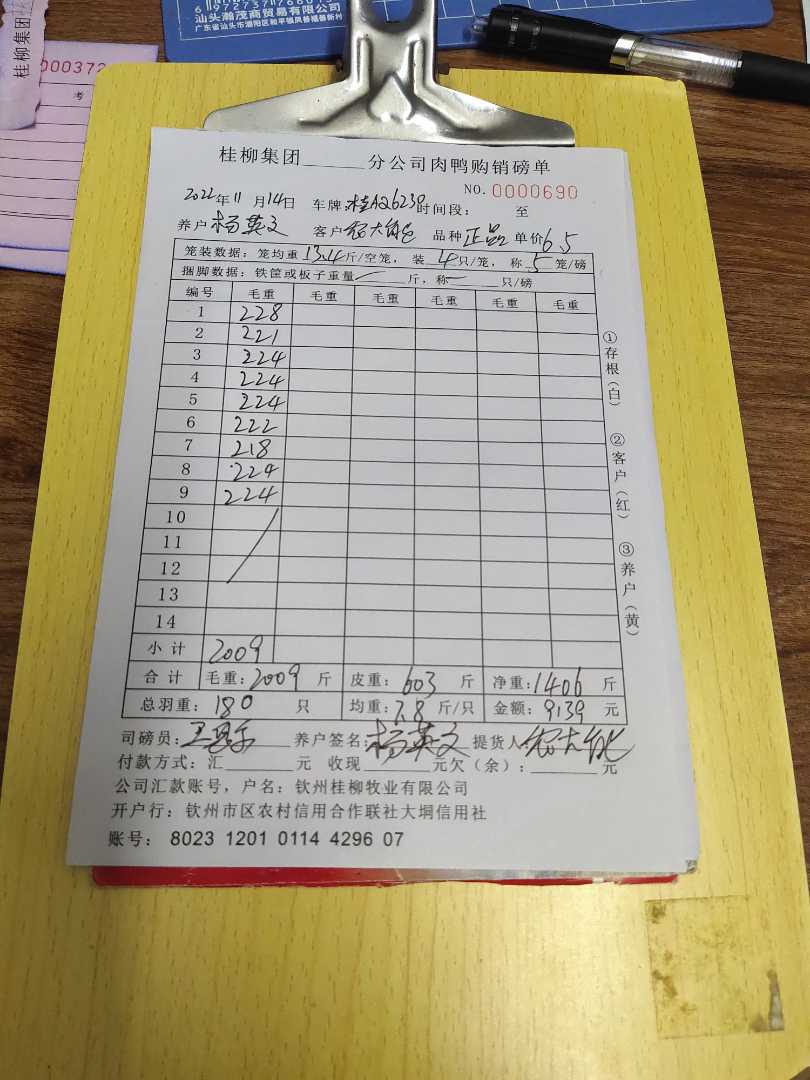 汕头瀚茂商贸有限公司
广东省汕头市潮阳区和平镇凤善福善新村
桂柳集团
000372
考
桂柳集团______分公司肉鸭购销磅单
NO. 0000690
2022年11月14日 车牌:桂A26239时间段: 至
养户杨英文 客户 品种正品 单价6.5
笼装数据:笼均重13.4斤/空笼,装4只/笼,称5笼/磅
捆脚数据:铁筐或板子重量 斤,称 只/磅
编号 毛重 毛重 毛重 毛重 毛重 毛重
1 228
2 221
3 224
4 224
5 224
6 222
7 218
8 224
9 224
10
11
12
13
14
小计 2009
合计 毛重:2009 斤 皮重:603 斤 净重:1406 斤
总羽重:180 只 均重:7.8斤/只 金额:9139 元
司磅员: 养户签名:杨英文 提货人:
付款方式:汇______元 收现______元欠(余):______元
公司汇款账号,户名:钦州桂柳牧业有限公司
开户行:钦州市区农村信用合作联社大垌信用社
账号: 8023 1201 0114 4296 07
①存根(白)
②客户(红)
③养户(黄)